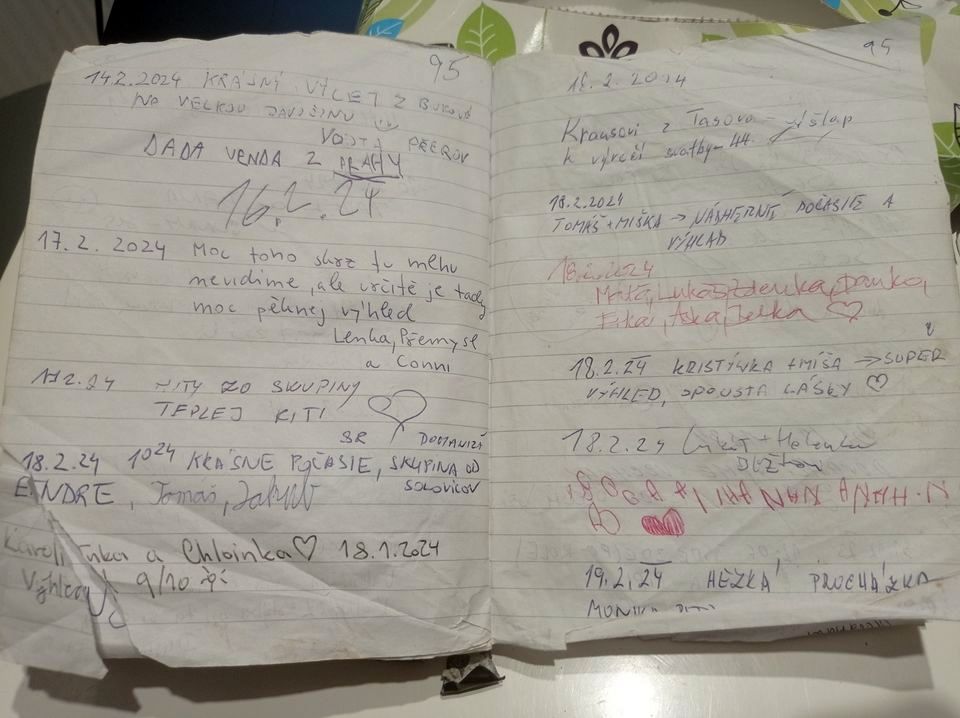 95
14.2.2024 KRÁSNÝ VÝLET Z BUKOVÉ
NA VELKOU JAVOŘINU
VOJTA PŘEROV
DADA VENDA Z PRAHY
16.2.24
17.2.2024 Moc toho skrz tu mlhu
nevidíme, ale určitě je tady
moc pěknej výhled
Lenka, Přemysl
a Conni
17.2.24 ZO SKUPINY
TEPLEJ RITI
SR DOMANIŽA
18.2.24 10²⁴ KRÁSNE POČASIE, SKUPINA OD
SOKOLÍKOV
ENDRE, Tomáš, Jakub
a Chloinka♡ 18.1.2024
Výhledy 9/10
95
18.2.2024
Krausovi z Tasova - výšlap
k výročí svatby - 44.
18.2.2024
TOMÁŠ+MIŠKA → NÁDHERNÉ POČASIE A
VÝHĽAD
18.2.2024
Lukáš, Zdenka, Danka,
♡
18.2.24 KRISTÝNKA + MÍŠA → SUPER
VÝHLED, SPOUSTA LÁSKY ♡
18.2.24 + Helenka
19.2.24 HEZKÁ PROCHÁZKA